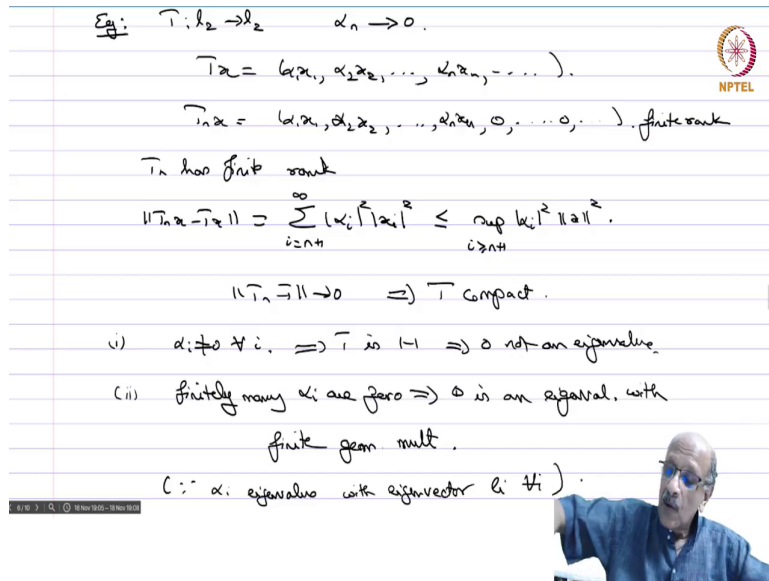 Eg: T: l₂ → l₂   αₙ → 0.
Tx = (α₁x₁, α₂x₂, ..., αₙxₙ, ....).
NPTEL
Tₙx = (α₁x₁, α₂x₂, ..., αₙxₙ, 0, ....0, ...). finite rank
Tₙ has finite rank
||Tₙx - Tx|| = ∑_{i=n+1}^{∞} |αᵢ|²|xᵢ|² ≤ sup_{i≥n+1} |αᵢ|² ||x||².
||Tₙ - T|| → 0 ⇒ T compact.
(i) αᵢ ≠ 0 ∀ i. ⇒ T is 1-1 ⇒ 0 not an eigenvalue.
(ii) finitely many αᵢ are zero ⇒ 0 is an eigenval. with
finite geom mult.
(∵ αᵢ eigenvalue with eigenvector eᵢ ∀i).
6/10 18 Nov 19:05 - 18 Nov 19:08